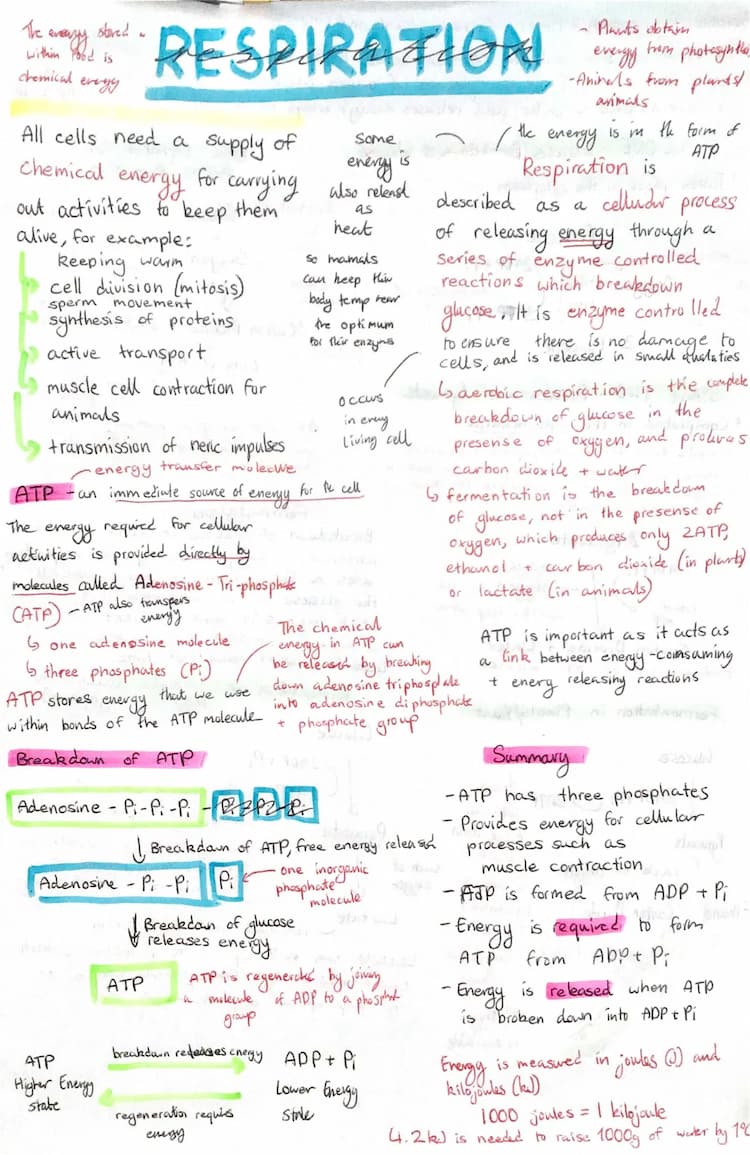 The energy stored
within food is
chemical energy
RESPIRATION
respiration
- Plants obtain
energy from photosynthe
- Animals from plants/
animals
All cells need a supply of
Chemical energy for carrying
out activities to keep them
alive, for example:
keeping warm
cell division (mitosis)
sperm movement
synthesis of proteins
active transport
muscle cell contraction for
animals
transmission of neric impulses
Some
energy is
also releasd
as
heat
so mamals
can keep thir
body temp near
the optimum
for their enzymes
occurs
in every
living cell
the energy is in the form of
ATP
Respiration is
described as a cellular process
of releasing energy through a
series of enzyme controlled
reactions which breakdown
glucose. It is enzyme controlled
to ensure there is no damage to
cells, and is released in small quatities
↳ aerobic respiration is the complete
breakdown of glucose in the
presense of oxygen, and produces
carbon dioxide + water
↳ fermentation is the breakdown
of glucose, not in the presense of
oxygen, which produces only 2ATP,
ethanol + carbon dioxide (in plants)
or lactate (in animals)
energy transfer molecule
ATP - an immediate source of energy for the cell
The energy required for cellular
activities is provided directly by
molecules called Adenosine-Tri-phosphate
(ATP) - ATP also transfers
energy
↳ one adenosine molecule
↳ three phosphates (Pi)
ATP stores energy that we use
within bonds of the ATP molecule
The chemical
energy in ATP can
be released by breaking
down adenosine triphosphate
into adenosine diphosphate
+ phosphate group
ATP is important as it acts as
a link between energy-comsuming
+ energy releasing reactions
Breakdown of ATP
Adenosine - Pi - Pi - Pi - Pi - Pi - Pi
↓ Breakdown of ATP, free energy released
Adenosine - Pi - Pi Pi ← one inorganic
phosphate
molecule
↓ Breakdown of glucose
releases energy
ATP
ATP is regenerated by joining
a molecule of ADP to a phosphate
group
ATP
Higher Energy
state
breakdown releases energy
regeneration requires
energy
ADP + Pi
Lower Energy
State
Summary
- ATP has three phosphates
- Provides energy for cellular
processes such as
muscle contraction
- ATP is formed from ADP + Pi
- Energy is required to form
ATP from ADP + Pi
- Energy is released when ATP
is broken down into ADP + Pi
Energy is measured in joules (J) and
kilojoules (kJ)
1000 joules = 1 kilojoule
4.2kJ is needed to raise 1000g of water by 1°C